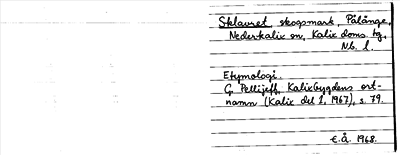 Sklauret skogsmark, Pålänge,
Nederkalix sn, Kalix doms. tg,
Nb. l.
Etymologi.
G Pellijeff, Kalixbygdens ort-
namn (Kalix del I, 1967), s. 79.
E.Å. 1968.